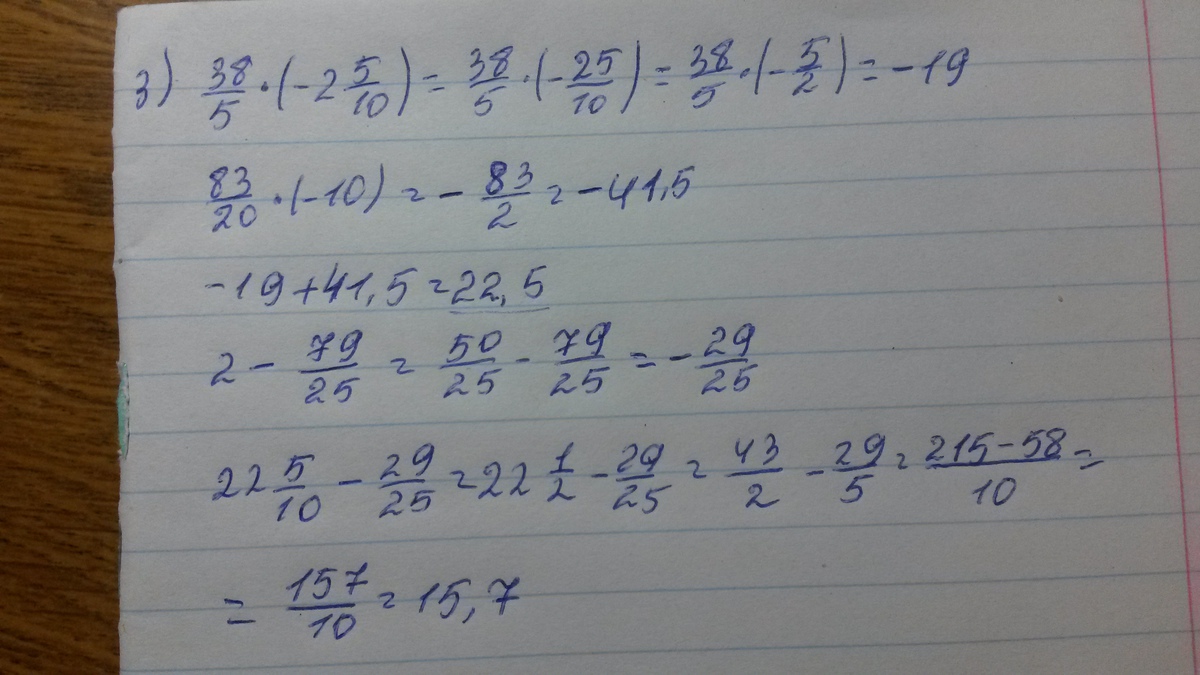 3) 38/5 · (-2 5/10) = 38/5 · (-25/10) = 38/5 · (-5/2) = -19
83/20 · (-10) = -83/2 = -41,5
-19+41,5 = 22,5
2 - 79/25 = 50/25 - 79/25 = -29/25
22 5/10 - 29/25 = 22 1/2 - 29/25 = 43/2 - 29/5 = 215-58/10 =
= 157/10 = 15,7